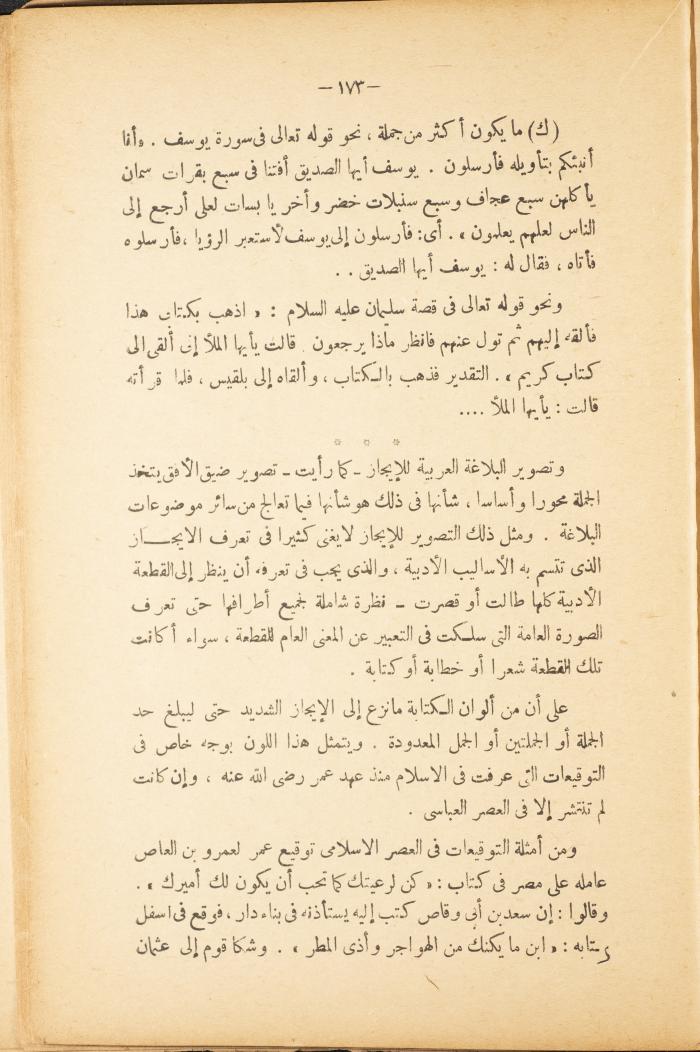 — ١٧٣ —
(ك) ما يكون أكثر من جملة ، نحو قوله تعالى فى سورة يوسف . «أنا
أنبئكم بتأويله فأرسلون . يوسف أيها الصديق أفتنا فى سبع بقرات سمان
يأكلهن سبع عجاف وسبع سنبلات خضر وأخر يابسات لعلى أرجع إلى
الناس لعلهم يعلمون » . أى : فأرسلون إلى يوسف لأستعبر الرؤيا ، فأرسلوه
فأتاه ، فقال له : يوسف أيها الصديق . .
ونحو قوله تعالى فى قصة سليمان عليه السلام : « اذهب بكتابى هذا
فألقه إليهم ثم تول عنهم فانظر ماذا يرجعون . قالت يأيها الملأ إنى ألقى الى
كتاب كريم » . التقدير فذهب بالكتاب ، وألقاه إلى بلقيس ، فلما قرأته
قالت : يأيها الملأ ....
* * *
وتصوير البلاغة العربية للإيجاز ـ كما رأيت ـ تصوير ضيق الأفق يتخذ
الجملة محورا وأساسا ، شأنها فى ذلك هو شأنها فيما تعالج من سائر موضوعات
البلاغة . ومثل ذلك التصوير للإيجاز لا يغنى كثيرا فى تعرف الايجــــاز
الذى تتسم به الأساليب الأدبية ، والذى يجب فى تعرفه أن ينظر إلى القطعة
الأدبية كلها طالت أو قصرت ـ نظرة شاملة لجميع أطرافها حتى تعرف
الصورة العامة التى سلكت فى التعبير عن المعنى العام للقطعة ، سواء أكانت
تلك القطعة شعرا أو خطابة أو كتابة .
على أن من ألوان الكتابة مانزع إلى الإيجاز الشديد حتى ليبلغ حد
الجملة أو الجملتين أو الجمل المعدودة . ويتمثل هذا اللون بوجه خاص فى
التوقيعات التى عرفت فى الاسلام منذ عهد عمر رضى الله عنه ، وإن كانت
لم تنتشر إلا فى العصر العباسى .
ومن أمثلة التوقيعات فى العصر الاسلامى توقيع عمر لعمرو بن العاص
عامله على مصر فى كتاب : « كن لرعيتك كما تحب أن يكون لك أميرك » .
وقالوا : إن سعد بن أبى وقاص كتب إليه يستأذنه فى بناء دار ، فوقع فى أسفل
كتابه : « ابن ما يكنك من الهواجر وأذى المطر » . وشكا قوم إلى عثمان